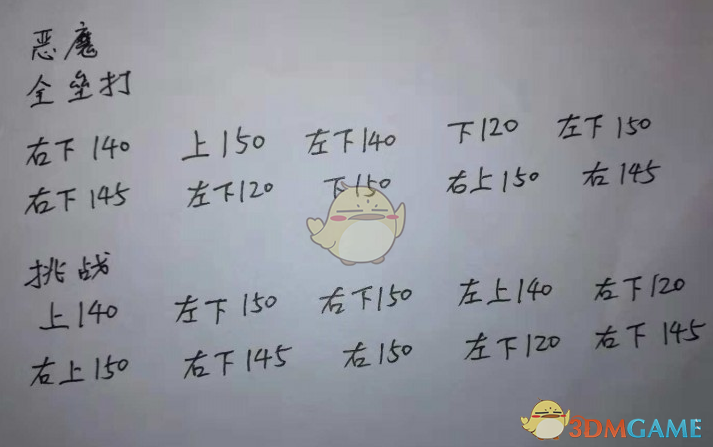 恶魔
全垒打
右下140 上150 左下140 下120 左下150
右下145 左下120 下150 右上150 右145
挑战
上140 左下150 右下150 左上140 右下120
右上150 右下145 右150 左下120 右下145
3DMGAME